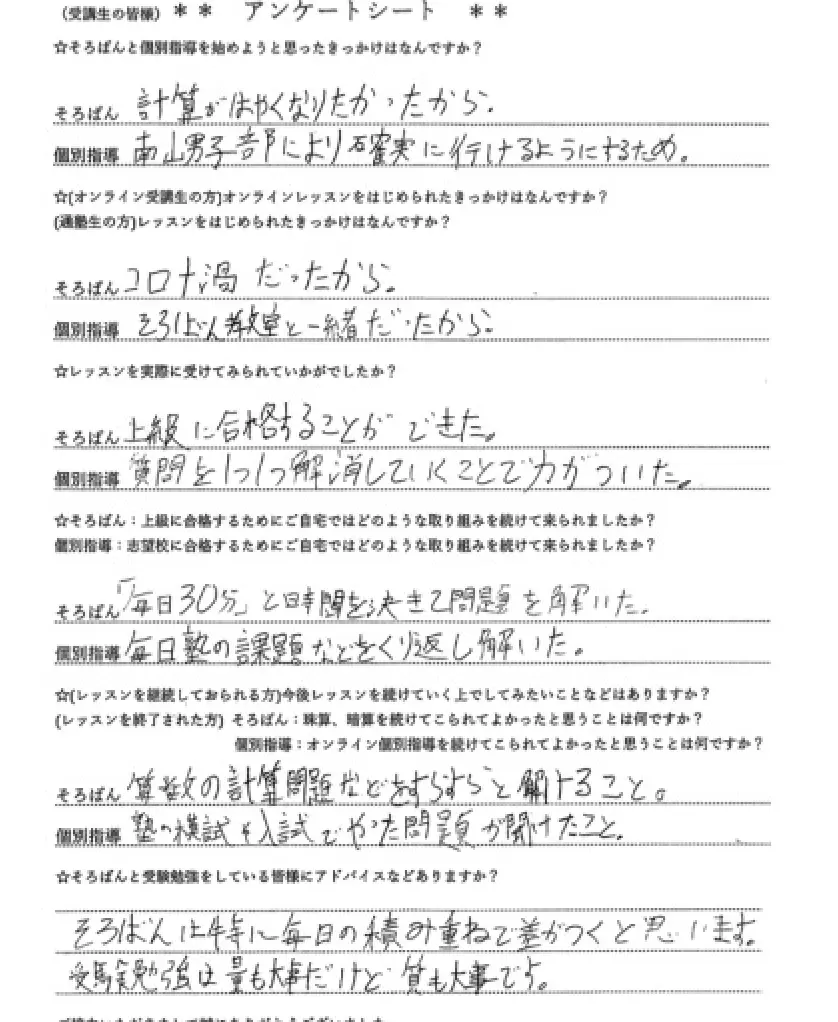 (受講生の皆様) ＊＊ アンケートシート ＊＊
☆そろばんと個別指導を始めようと思ったきっかけはなんですか？
そろばん 計算がはやくなりたかったから.
個別指導 南山男子部により確実に行けるようにするため。
☆(オンライン受講生の方)オンラインレッスンをはじめられたきっかけはなんですか？
(通塾生の方)レッスンをはじめられたきっかけはなんですか？
そろばん コロナ渦だったから。
個別指導 そろばん教室と一緒だったから.
☆レッスンを実際に受けてみられていかがでしたか？
そろばん 上級に合格することができた。
個別指導 質問を1つ1つ解消していくことで力がついた。
☆そろばん：上級に合格するためにご自宅ではどのような取り組みを続けて来られましたか？
個別指導：志望校に合格するためにご自宅ではどのような取り組みを続けて来られましたか？
そろばん 「毎日30分」と時間を決きて問題を解いた.
個別指導 毎日塾の課題などをくり返し解いた。
☆(レッスンを継続しておられる方)今後レッスンを続けていく上でしてみたいことなどはありますか？
(レッスンを終了された方) そろばん：珠算、暗算を続けてこられてよかったと思うことは何ですか？
個別指導：オンライン個別指導を続けてこられてよかったと思うことは何ですか？
そろばん 算数の計算問題などをすらすらと解けること。
個別指導 塾の模試や入試でやった問題が聞けたこと.
☆そろばんと受験勉強をしている皆様にアドバイスなどありますか？
そろばんは特に毎日の積み重ねで差がつくと思います。
受験勉強は量も大事だけど質も大事です。